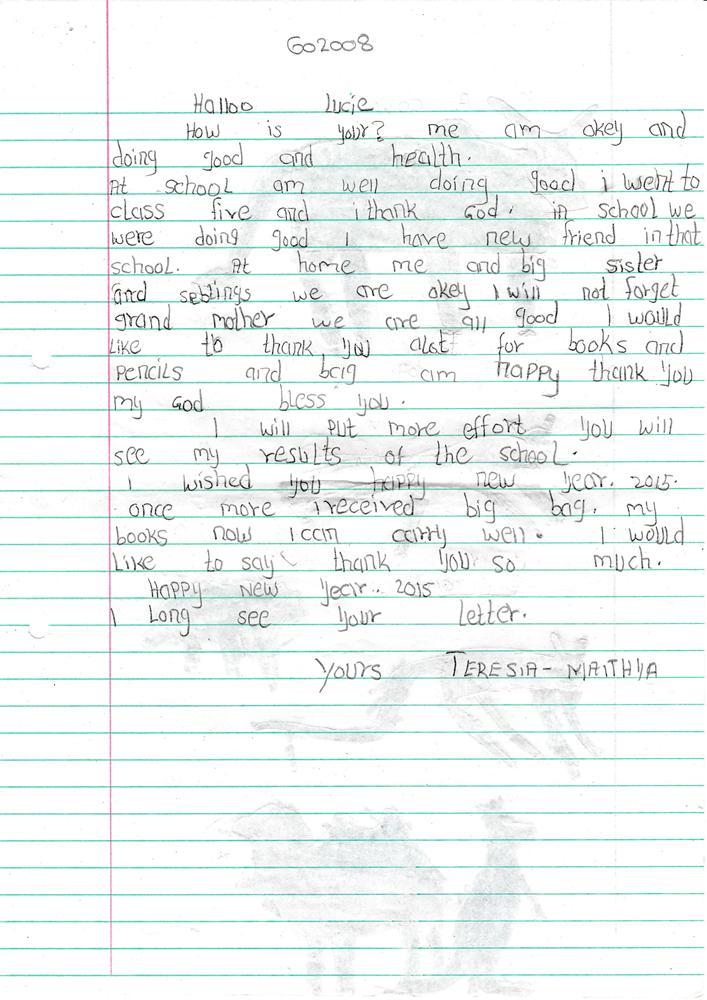 GO2008
Halloo Lucie
How is your? me am okey and
doing good and health.
At school am well doing good i went to
class five and i thank God. in school we
were doing good I have new friend in that
school. At home me and big sister
and seblings we are okey I will not forget
grand mother we are all good I would
Like to thank you alot for books and
pencils and bag am happy thank you
my God bless you.
I will put more effort you will
see my results of the school.
I wished you happy new year. 2015.
once more ireceived big bag. my
books now I can carry well. I would
Like to say thank you so much.
Happy New Year.. 2015
I Long see your Letter.
Yours TERESIA - MAITHYA